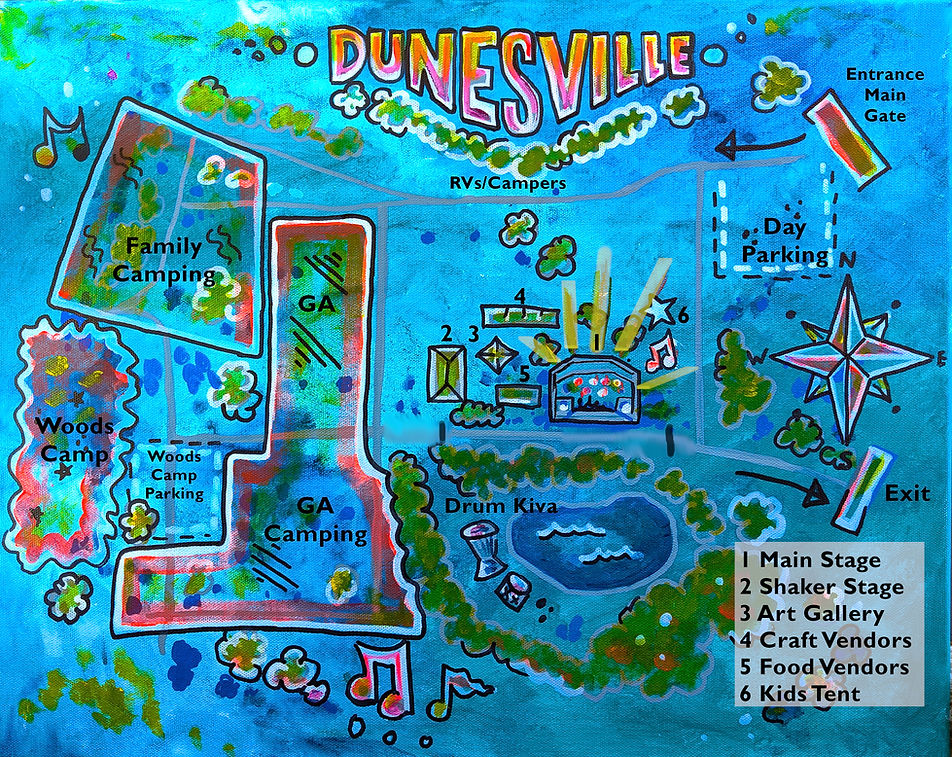 DUNESVILLE
Entrance
Main
Gate
RVs/Campers
Day
Parking
N
Family
Camping
GA
4
6
2 3
1
5
W
E
Woods
Camp
Woods
Camp
Parking
S
Exit
GA
Camping
Drum Kiva
1 Main Stage
2 Shaker Stage
3 Art Gallery
4 Craft Vendors
5 Food Vendors
6 Kids Tent